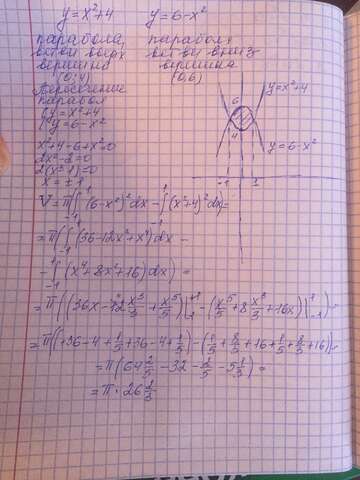 y = x²+4    y = 6-x²
парабола,    парабола
ветви вверх    ветви вниз
вершина    вершина
(0; 4)    (0, 6)
Пересечение
парабол
{y = x²+4
{y = 6-x²
x²+4-6+x²=0
2x²-2=0
2(x²-1)=0
x = ±1
y=x²+4
6
4
y=6-x²
-1    1
V = π(∫₋₁¹ (6-x²)²dx - ∫₋₁¹ (x²+4)²dx) =
= π(∫₋₁¹ (36-12x²+x⁴)dx -
- ∫₋₁¹ (x⁴+8x²+16)dx) =
= π((36x-12 x³/3 + x⁵/5)|₋₁¹ - (x⁵/5 + 8 x³/3 + 16x)|₋₁¹) =
= π((+36-4+1/5+36-4+1/5) - (1/5+8/3+16+1/5+8/3+16)) =
= π(64 2/5 - 32 - 2/5 - 5 1/3) =